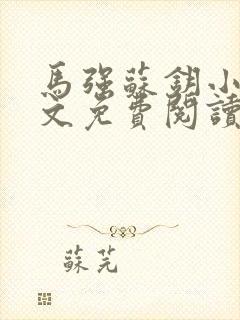 馬強蘇鈅小
文免費閱讀
蘇芫